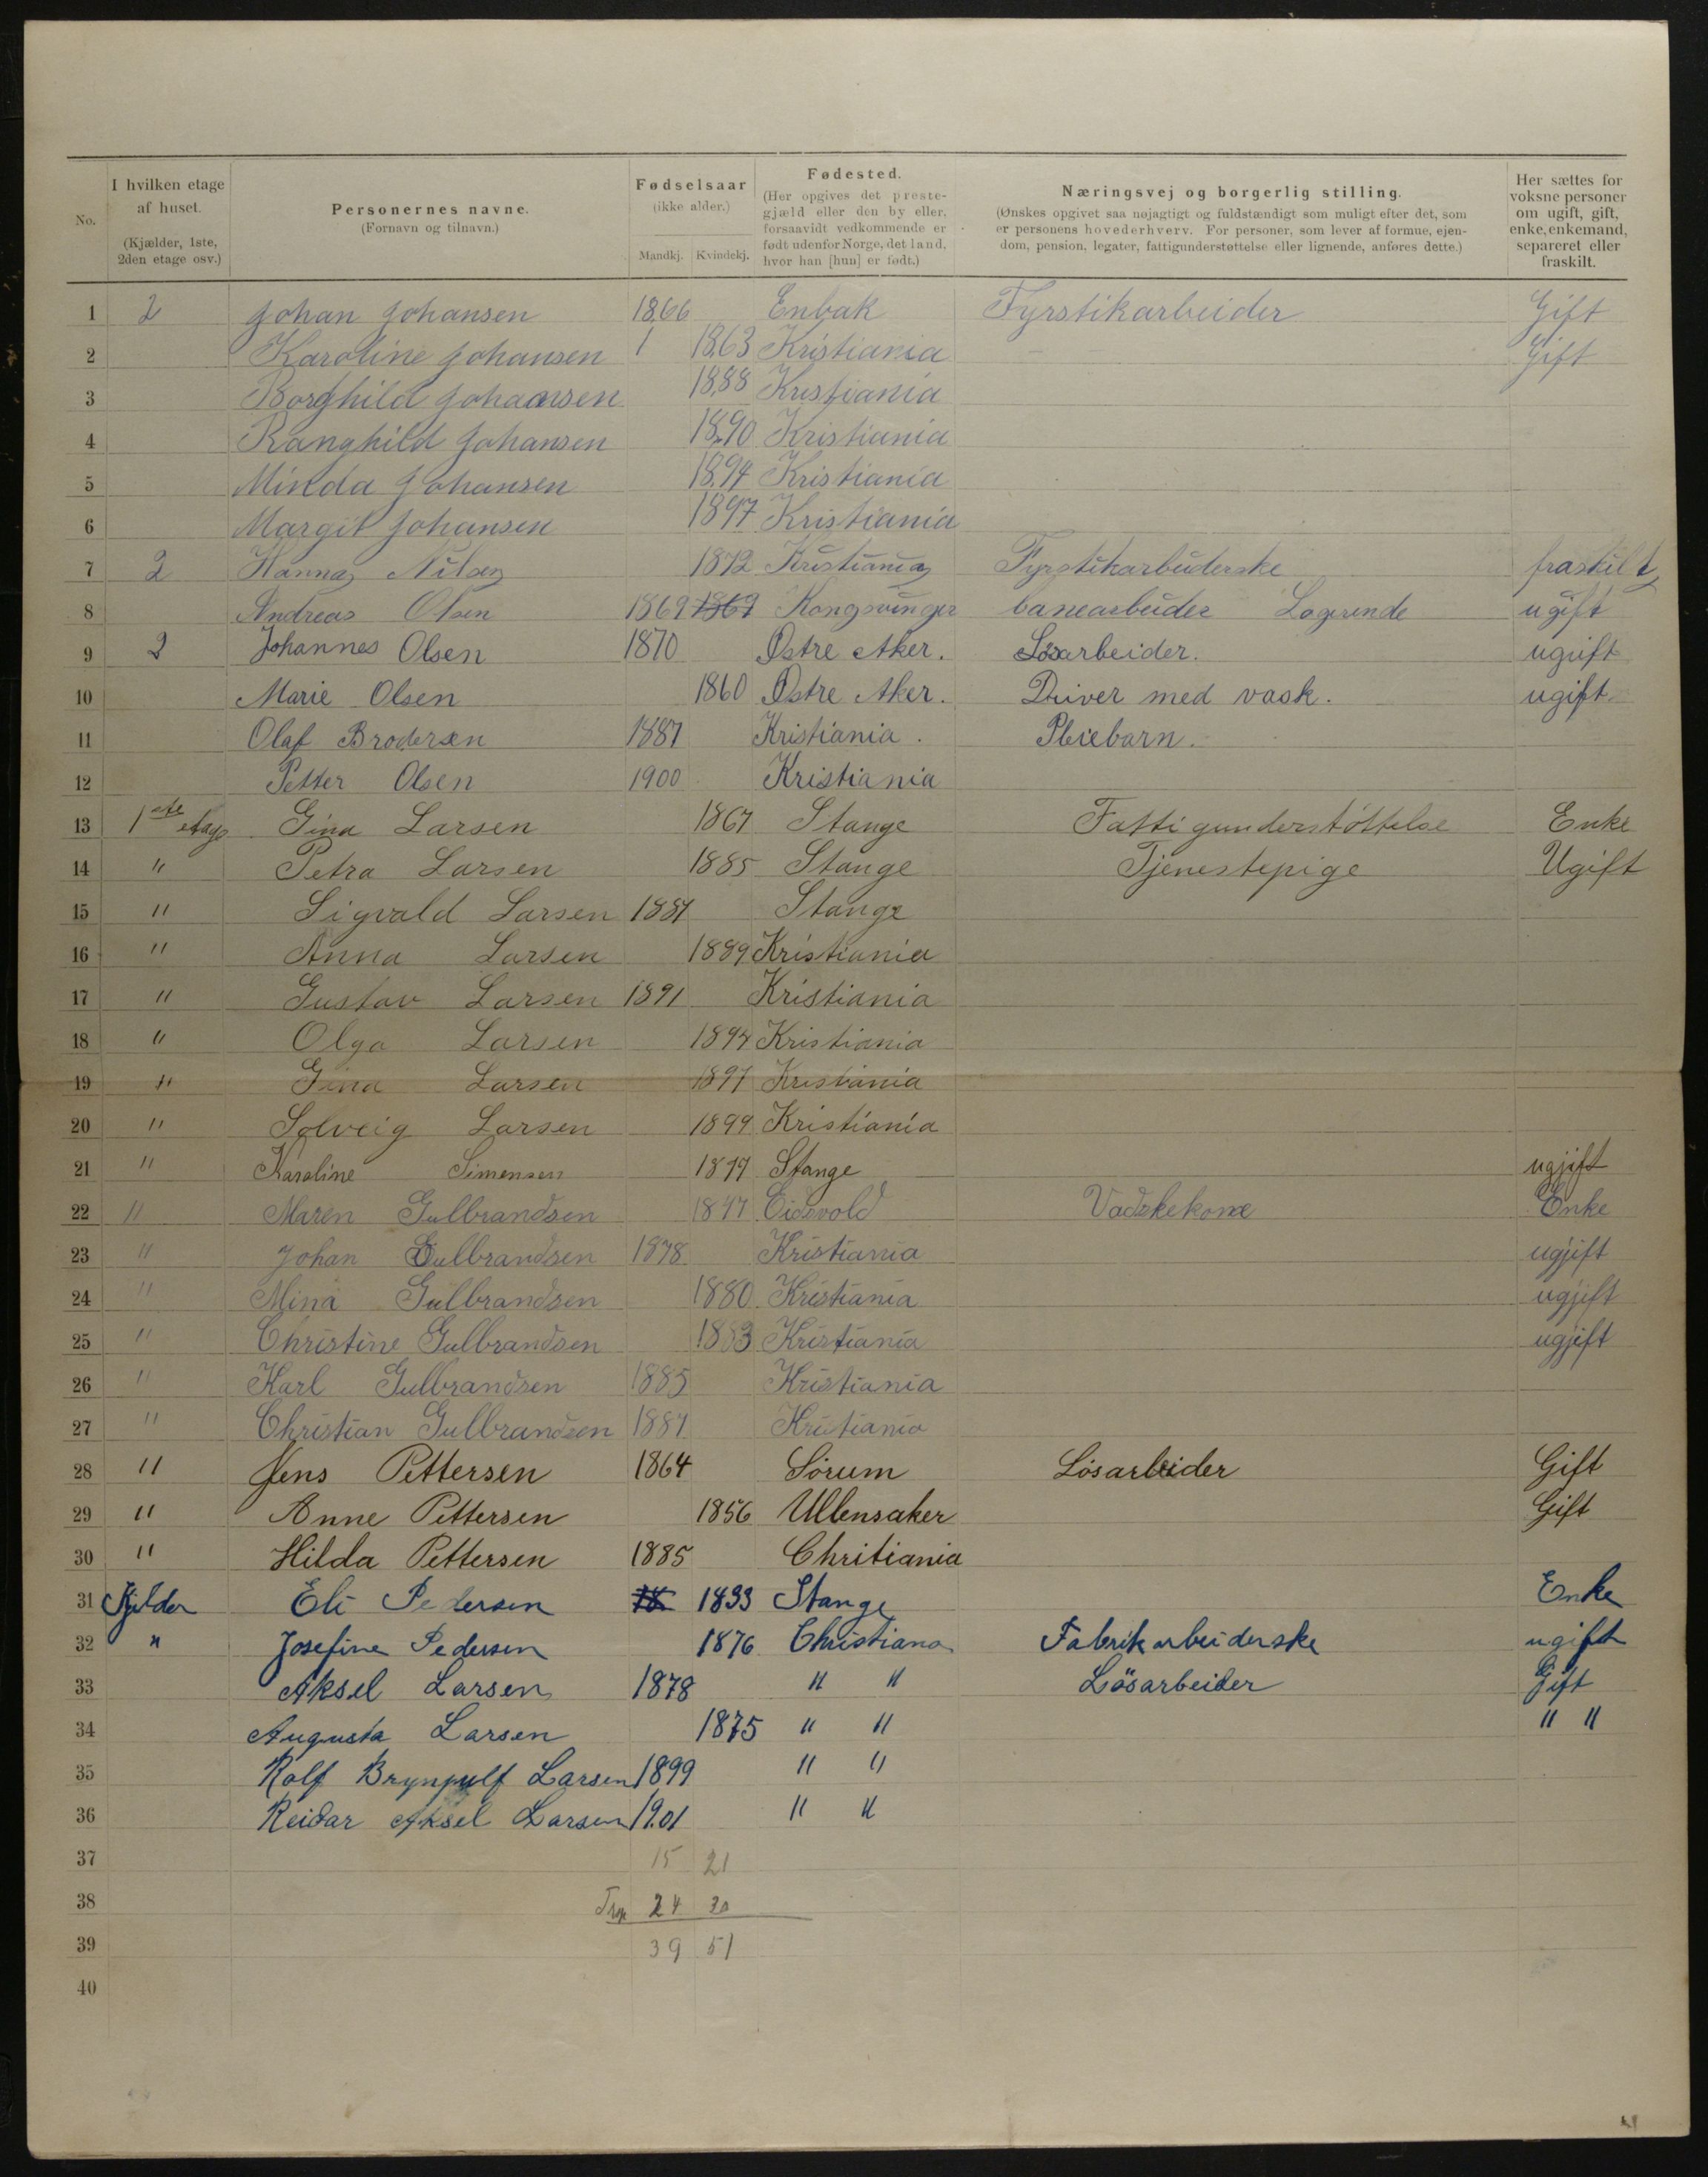 No. I hvilken etage af huset. (Kjælder, 1ste, 2den etage osv.) Personernes navne. (Fornavn og tilnavn.) Fødselsaar (ikke alder.) Mandkj. Kvindekj. Fødested. (Her opgives det prestegjæld eller den by eller, forsaavidt vedkommende er født udenfor Norge, det land, hvor han [hun] er født.) Næringsvej og borgerlig stilling. (Ønskes opgivet saa nøjagtigt og fuldstændigt som muligt efter det, som er personens hovederhverv. For personer, som lever af formue, ejendom, pension, legater, fattigunderstøttelse eller lignende, anføres dette.) Her sættes for voksne personer om ugift, gift, enke, enkemand, separeret eller fraskilt.
1 2 Johan Johansen 1866 Enbak Fyrstikarbeider Gift
2 Karoline Johansen 1 1863 Kristiania Gift
3 Borghild Johansen 1888 Kristiania
4 Ranghild Johansen 1890 Kristiania
5 Minda Johansen 1894 Kristiania
6 Margit Johansen 1897 Kristiania
7 2 Hanna Nilsen 1872 Kristiania Fyrstikarbeiderske fraskilt
8 Andreas Olsen 1869 1869 Kongsvinger banearbeider Logerende ugift
9 2 Johannes Olsen 1870 Østre Aker. Løsarbeider. ugift
10 Marie Olsen 1860 Østre Aker. Driver med vask. ugift
11 Olaf Brodersen 1887 Kristiania. Pleiebarn.
12 Petter Olsen 1900 Kristiania
13 1ste etage Gina Larsen 1867 Stange Fattigunderstøttelse Enke
14 " Petra Larsen 1885 Stange Tjenestepige Ugift
15 " Sigvald Larsen 1887 Stange
16 " Anna Larsen 1889 Kristiania
17 " Gustav Larsen 1891 Kristiania
18 " Olga Larsen 1894 Kristiania
19 " Gina Larsen 1897 Kristiania
20 " Solveig Larsen 1899 Kristiania
21 " Karoline Simensen 1879 Stange ugjift
22 " Maren Gulbrandsen 1847 Eidsvold Vadskekone Enke
23 " Johan Gulbrandsen 1878 Kristiania ugjift
24 " Mina Gulbrandsen 1880 Kristiania ugjift
25 " Christine Gulbrandsen 1883 Kristiania ugjift
26 " Karl Gulbrandsen 1885 Kristiania
27 " Christian Gulbrandsen 1887 Kristiania
28 " Jens Pettersen 1864 Sórum Lósarbeider Gift
29 " Anne Pettersen 1856 Ullensaker Gift
30 " Hilda Pettersen 1885 Chritiania
31 Kjelder Eli Pedersen 18 1833 Stange Enke
32 " Josefine Pedersen 1876 Christiana Fabrikarbeiderske ugift
33 Aksel Larsen 1878 " " Lösarbeider Gift
34 Augusta Larsen 1875 " " " "
35 Rolf Brynjulf Larsen 1899 " "
36 Reidar Aksel Larsen 1901 " "
37 15 21
38 24 30
39 39 51
40